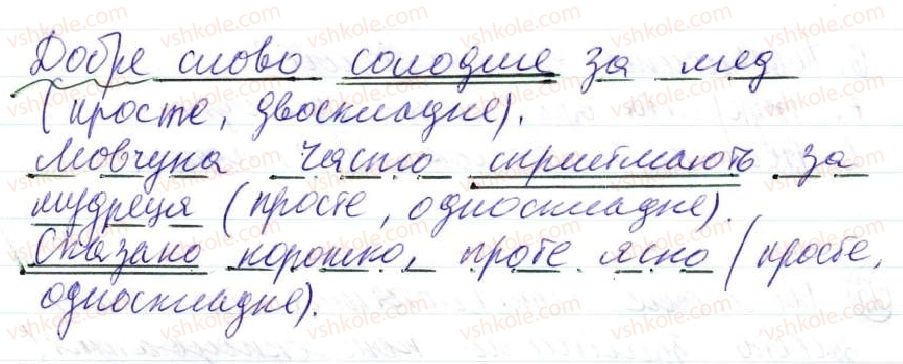 Добре слово солодше за мед
(просте, двоскладне).
Мовчуна часто сприймають за
мудреця (просте, односкладне).
Сказано коротко, проте ясно (просте,
односкладне).